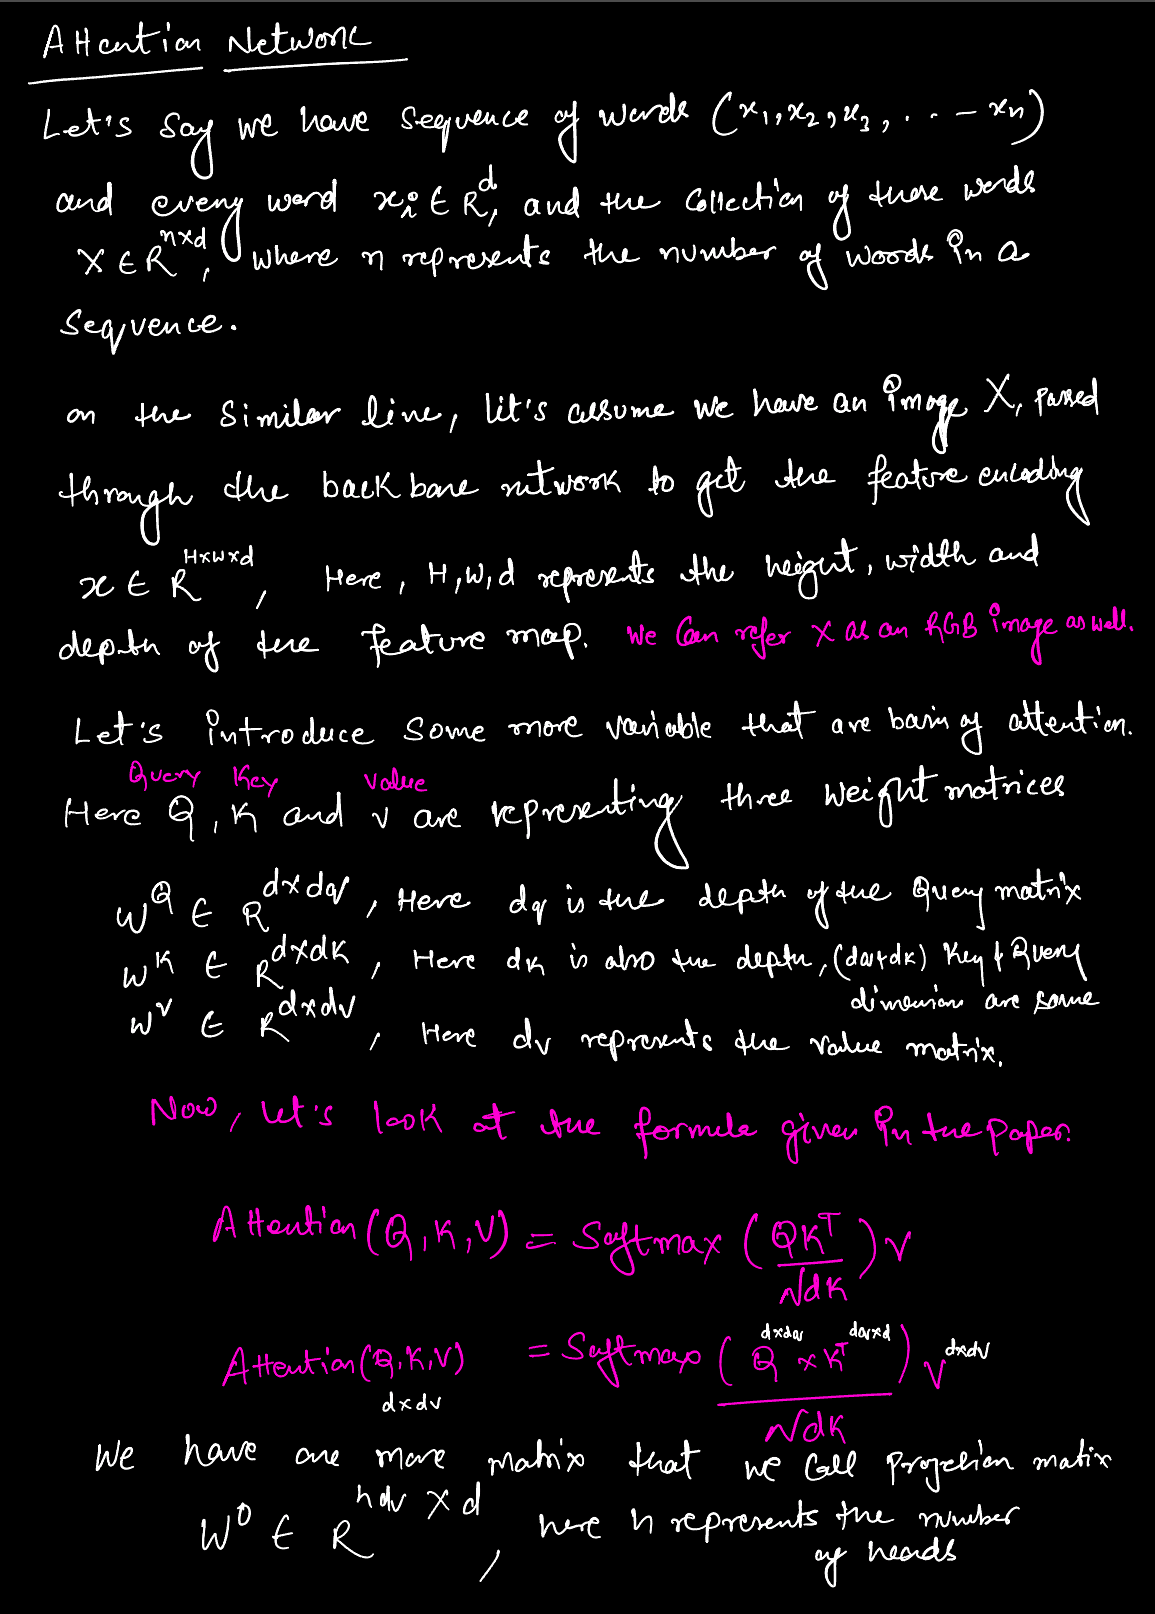 Attention Network
Let's say we have sequence of words (x₁, x₂, x₃, . . . – xₙ)
and every word xᵢ ∈ R^d, and the collection of those words
X ∈ R^{n×d}, where n represents the number of words in a
sequence.
on the similar line, let's assume we have an image X, passed
through the backbone network to get the feature encoding
x ∈ R^{H×W×d}, Here, H,W,d represents the height, width and
depth of the feature map. We can refer X as an RGB image as well.
Let's introduce some more variable that are basis of attention.
Query Key Value
Here Q, K and V are representing three weight matrices
W^Q ∈ R^{d×dq}, Here dq is the depth of the Query matrix
W^K ∈ R^{d×dk}, Here dk is also the depth, (dq+dk) Key & Query
dimension are same
W^V ∈ R^{d×dv}, Here dv represents the value matrix.
Now, let's look at the formula given in the paper.
Attention(Q,K,V) = Softmax (QK^T / √dk) V
Attention(Q,K,V) = Softmax (Q^{d×dq} × K^T^{dq×d} / √dk) V^{d×dv}
d×dv
We have one more matrix that we call projection matrix
W^O ∈ R^{hdv × d}, here h represents the number
of heads